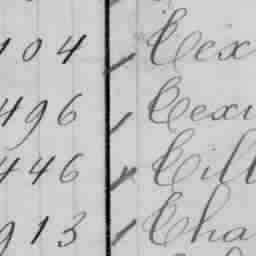 104 Cex
496 Cexi
446 Cill
913 Cha